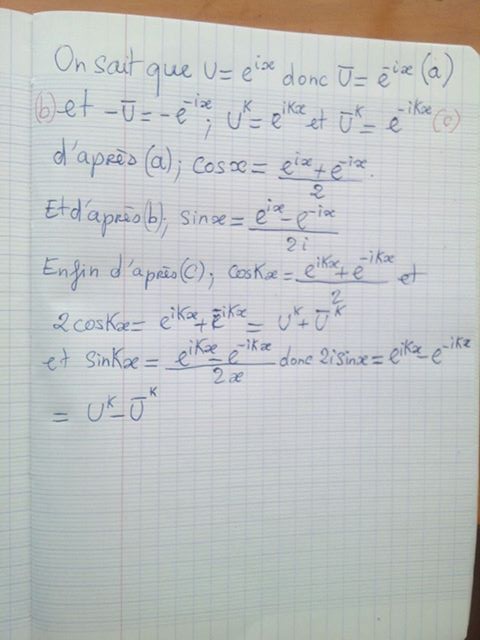 On sait que U = e^{ix} donc Ū = e^{-ix} (a)
(b) et -Ū = -e^{-ix} ; U^K = e^{iKx} et Ū^K = e^{-iKx} (c)
d'après (a) ; cosx = \frac{e^{ix} + e^{-ix}}{2}.
Et d'après (b) ; sinx = \frac{e^{ix} - e^{-ix}}{2i}
Enfin d'après (C) ; cosKx = \frac{e^{iKx} + e^{-iKx}}{2} et
2cosKx = e^{iKx} + e^{-iKx} = U^K + Ū^K
et sinKx = \frac{e^{iKx} - e^{-iKx}}{2x} donc 2isinx = e^{iKx} - e^{-iKx}
= U^K - Ū^K